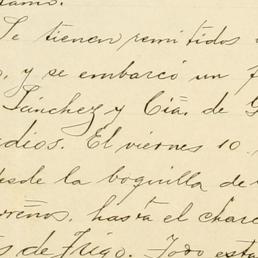 Se tienen remitidos
, y se embarcó un
Sánchez y Cía. de G
dios. El viernes 10
esde la boquilla de
reños, hasta el charc
s de Trigo. Todo esta